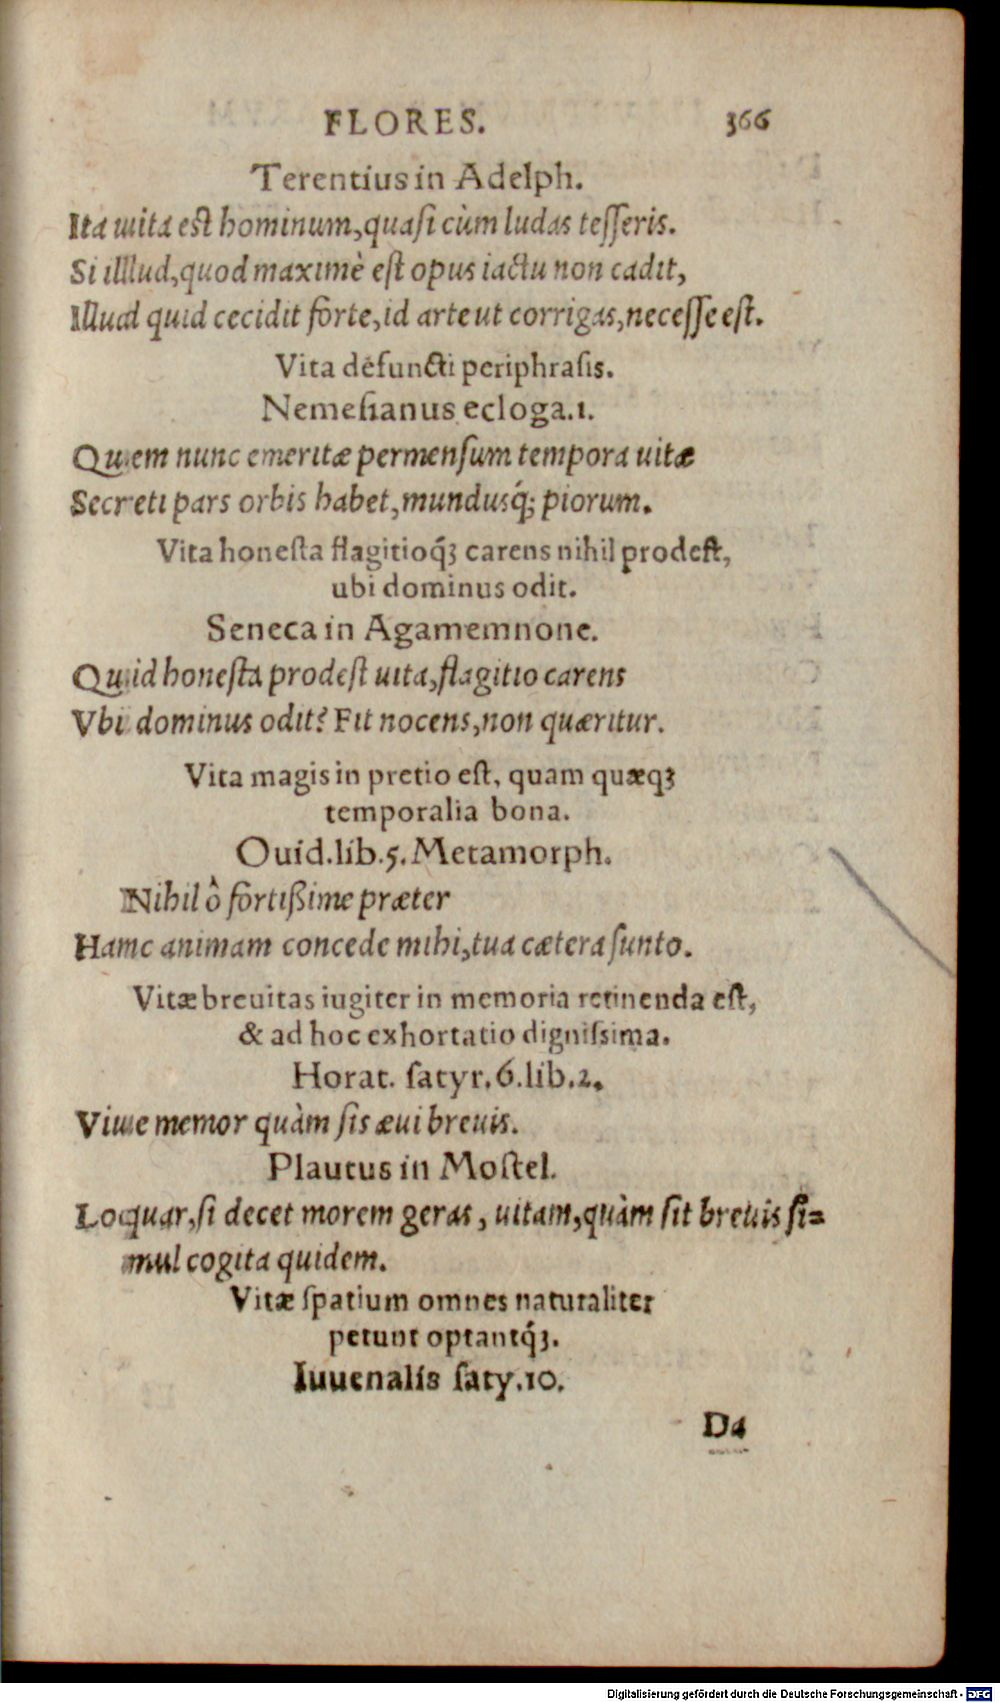 FLORES. 366
Terentius in Adelph.
Ita uita est hominum, quasi cùm ludas tesseris.
Si illud, quod maximè est opus iactu non cadit,
Illud quid cecidit forte, id arte ut corrigas, necesse est.
Vita defuncti periphrasis.
Nemesianus ecloga.1.
Quem nunc emeritæ permensum tempora uitæ
Secreti pars orbis habet, mundusq́; piorum.
Vita honesta flagitioq́ꝫ carens nihil prodest,
ubi dominus odit.
Seneca in Agamemnone.
Quid honesta prodest uita, flagitio carens
Vbi dominus odit? Fit nocens, non quæritur.
Vita magis in pretio est, quam quæqꝫ
temporalia bona.
Ouid.lib.5. Metamorph.
Nihil ô fortißime præter
Hanc animam concede mihi, tua cætera sunto.
Vitæ breuitas iugiter in memoria retinenda est,
& ad hoc exhortatio dignissima.
Horat. satyr. 6. lib.2.
Viue memor quàm sis æui breuis.
Plautus in Mostel.
Loquar, si decet morem geras, uitam, quàm sit breuis si=
mul cogita quidem.
Vitæ spatium omnes naturaliter
petunt optantq́ꝫ.
Iuuenalis saty.10.
D4
Digitalisierung gefördert durch die Deutsche Forschungsgemeinschaft - DFG